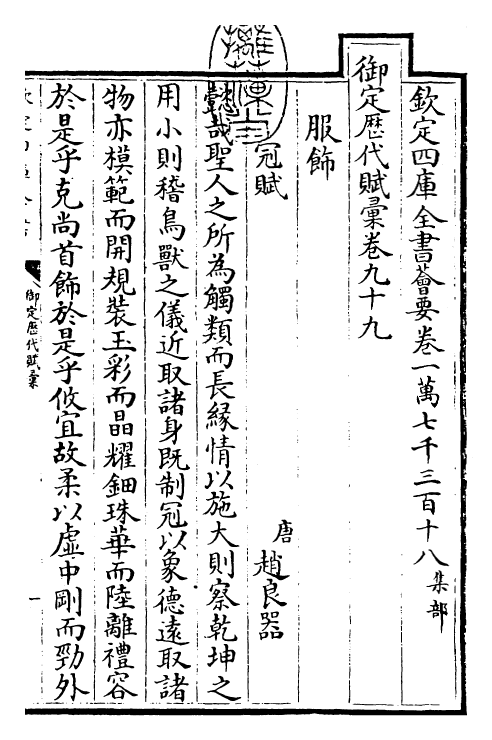 欽定四庫全書薈要卷一萬七千三百十八 集部
御定歷代賦彙卷九十九
服飾
冠賦 唐 趙良器
懿哉聖人之所為觸類而長緣情以施大則察乾坤之
用小則稽鳥獸之儀近取諸身既制冠以象德遠取諸
物亦模範而開規裝玉彩而晶耀鈿珠華而陸離禮容
於是乎克尚首飾於是乎攸宜故柔以虛中剛而勁外
御定歷代賦彙
一